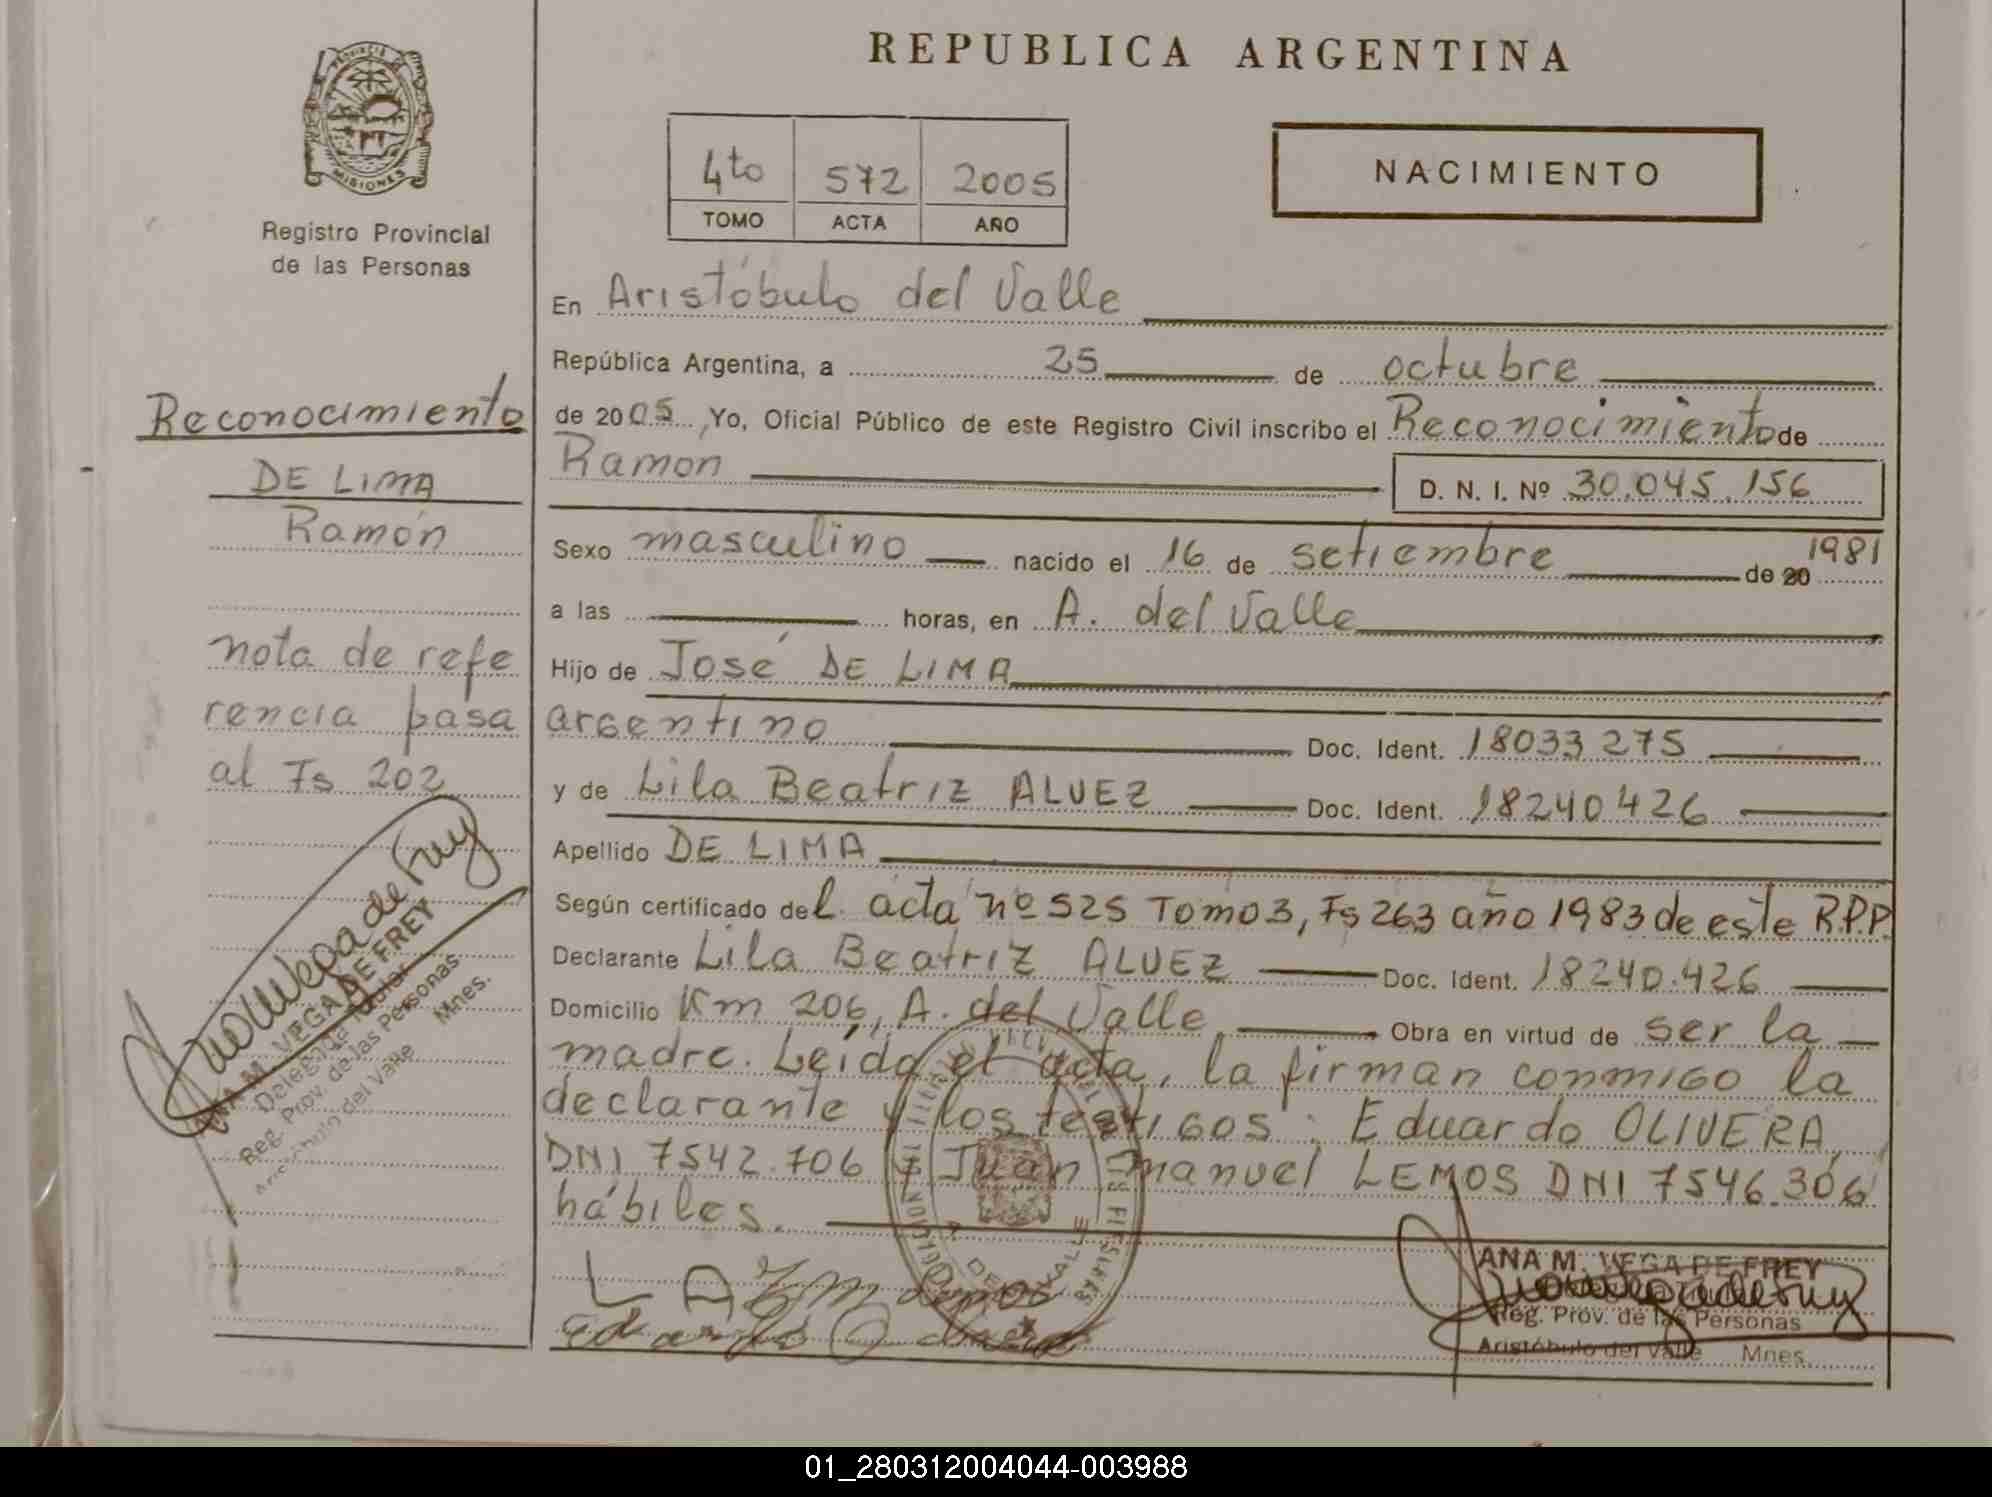 REPUBLICA ARGENTINA
PROVINCIA DE
MISIONES
Registro Provincial
de las Personas
4to 572 2005
TOMO ACTA AÑO
NACIMIENTO
Reconocimiento
DE LIMA
Ramón
nota de refe
rencia pasa
al Fs 202
ANA M. VEGA DE FREY
Delegada Titular
Reg. Prov. de las Personas
Aristóbulo del Valle Mnes.
En Aristóbulo del Valle
República Argentina, a 25 de octubre
de 2005, Yo, Oficial Público de este Registro Civil inscribo el Reconocimiento de
Ramon D. N. I. Nº 30.045.156
Sexo masculino nacido el 16 de setiembre de 20 1981
a las horas, en A. del Valle
Hijo de José DE LIMA
argentino Doc. Ident. 18033275
y de Lila Beatriz ALVEZ Doc. Ident. 18240426
Apellido DE LIMA
Según certificado del acta nº 525 Tomo 3, Fs 263 año 1983 de este R.P.P.
Declarante Lila Beatriz ALVEZ Doc. Ident. 18240.426
Domicilio Km 206, A. del Valle Obra en virtud de ser la
madre. Leída el acta, la firman conmigo la
declarante y los testigos: Eduardo OLIVERA
DNI 7542.706 y Juan Manuel LEMOS DNI 7546.306
hábiles.
L A
Eduardo
ANA M. VEGA DE FREY
Reg. Prov. de las Personas
Aristóbulo del Valle Mnes.
01_280312004044-003988